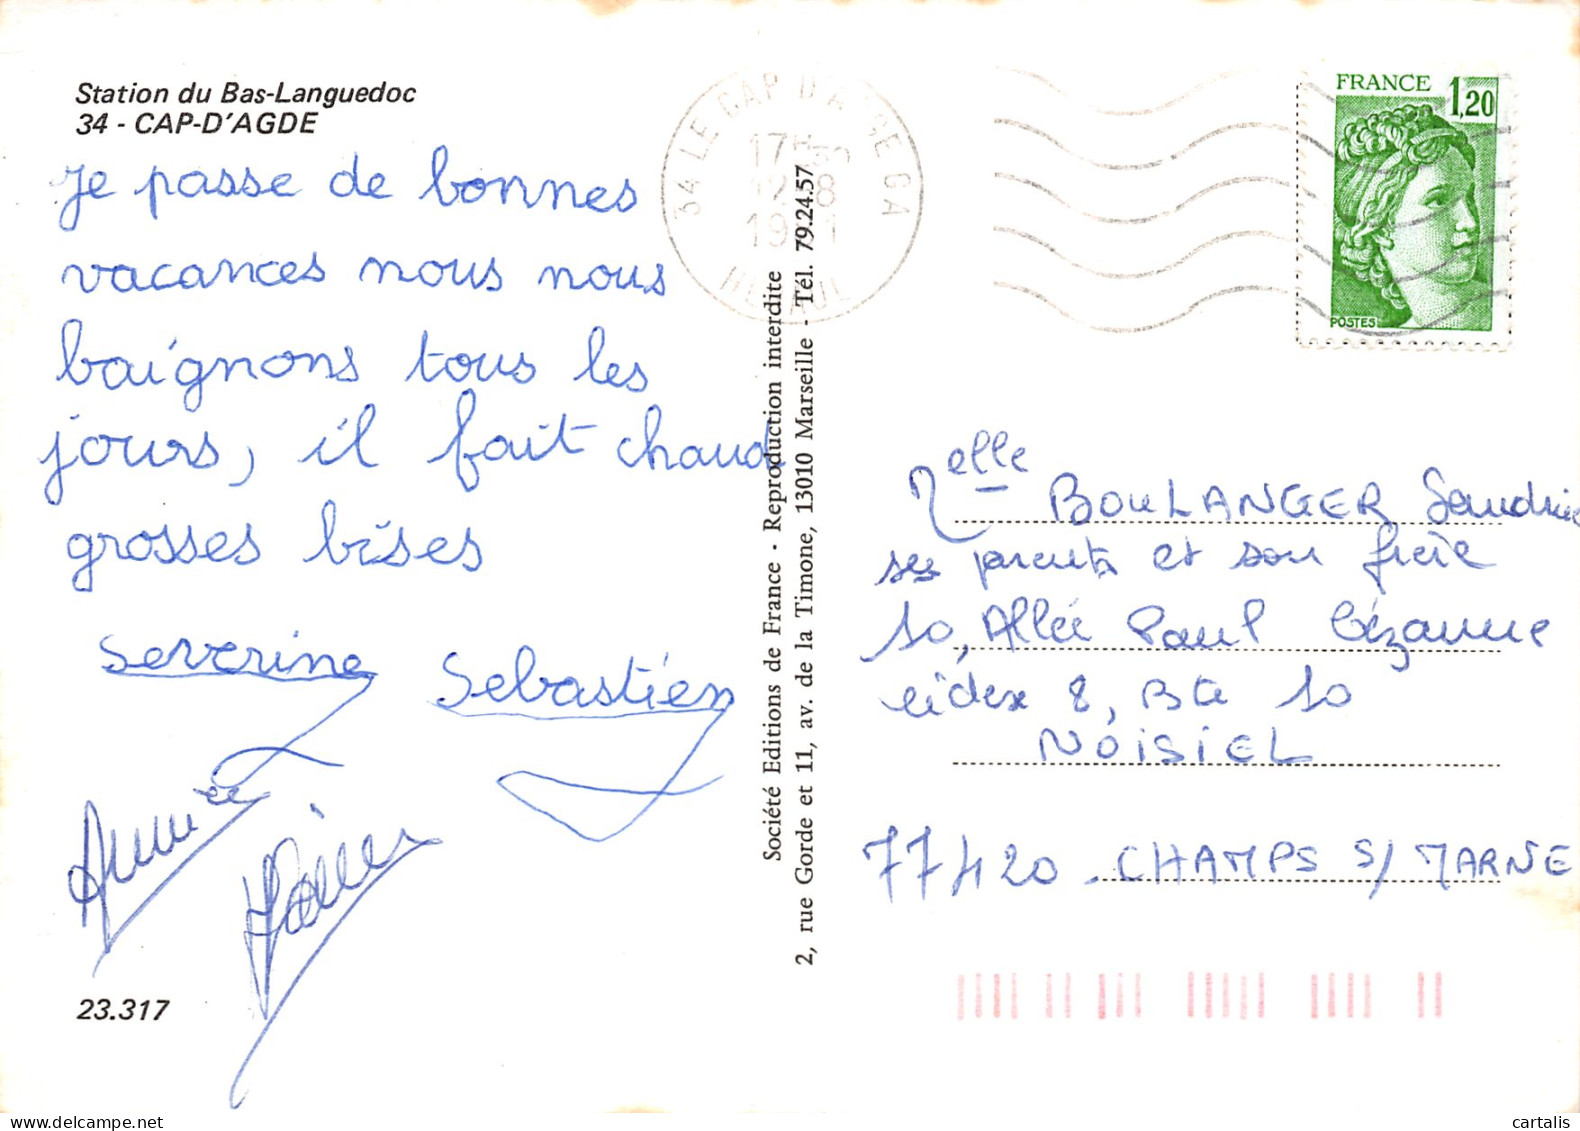 Station du Bas-Languedoc
34 - CAP-D'AGDE
Je passe de bonnes
vacances nous nous
baignons tous les
jours, il fait chaud
grosses bises
Severine
Sebastien
Annie
23.317
Société Editions de France - Reproduction interdite
2, rue Gorde et 11, av. de la Timone, 13010 Marseille - Tél. 79.24.57
34 LE CAP D'AGDE CA
17H30
12-8
1981
HERAULT
FRANCE
1,20
POSTES
Melle BOULANGER Sandrine
ses parents et son frère
10, Allée Paul Cézanne
cidex 8, Bte 10
NOISIEL
77420 - CHAMPS S/ MARNE
cartalis